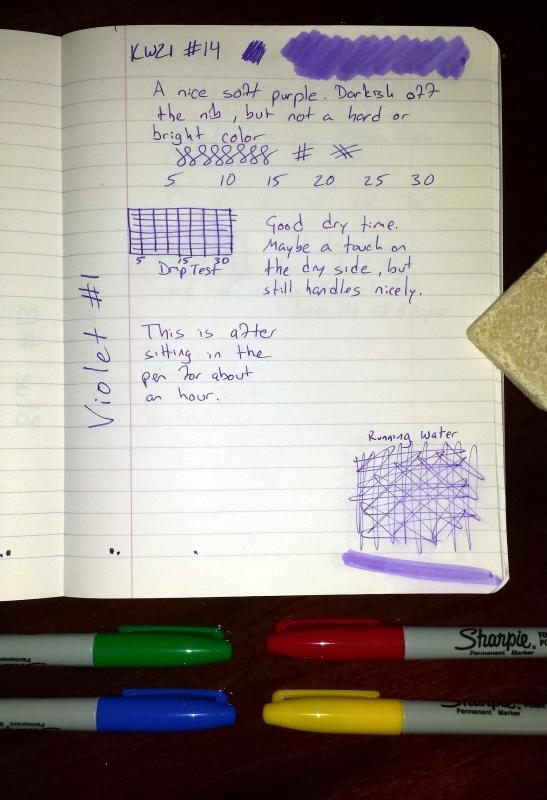 KWZI #14
A nice soft purple. Darkish off
the nib, but not a hard or
bright color
# 
5 10 15 20 25 30
5 15 30
Drip Test
Good dry time.
Maybe a touch on
the dry side, but
still handles nicely.
Violet #1
This is after
sitting in the
pen for about
an hour.
Running Water
Sharpie.
Permanent Marker
Permanent Marker